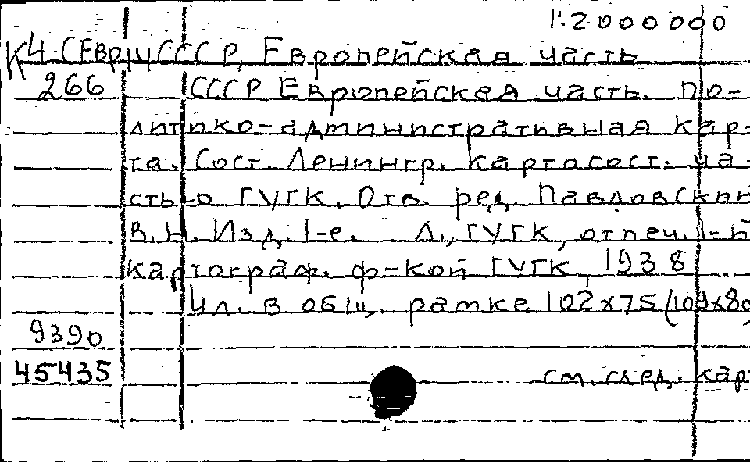 1:2 000 000
К4 СЕвр.ч СССР, Европейская часть
266 СССР Европейская часть. По-
литико-административная кар-
та. Сост. Ленингр. картосост. ча-
стью ГУГК. Отв. ред. Павловский
В.Н. Изд. 1-е. Л., ГУГК, отпеч. 1-й
картограф. ф-кой ГУГК, 1938
4л. в общ. рамке 102х75 (109х80
9390
45435 см. след. кар